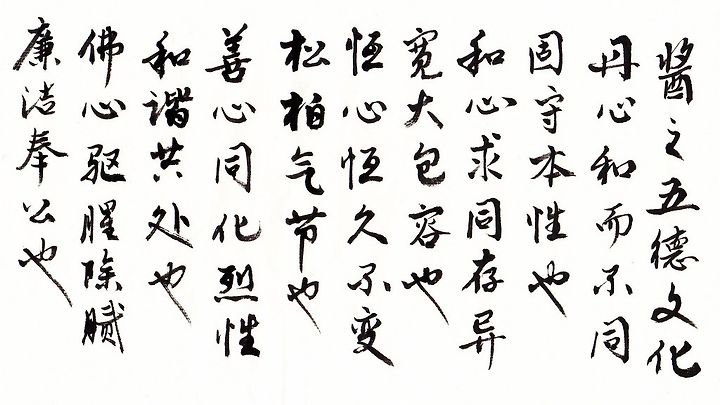 醬之五德文化
丹心和而不同
固守本性也
和心求同存异
宽大包容也
恒心恒久不变
松柏气节也
善心同化烈性
和谐共处也
佛心驱腥除腻
廉洁奉公也